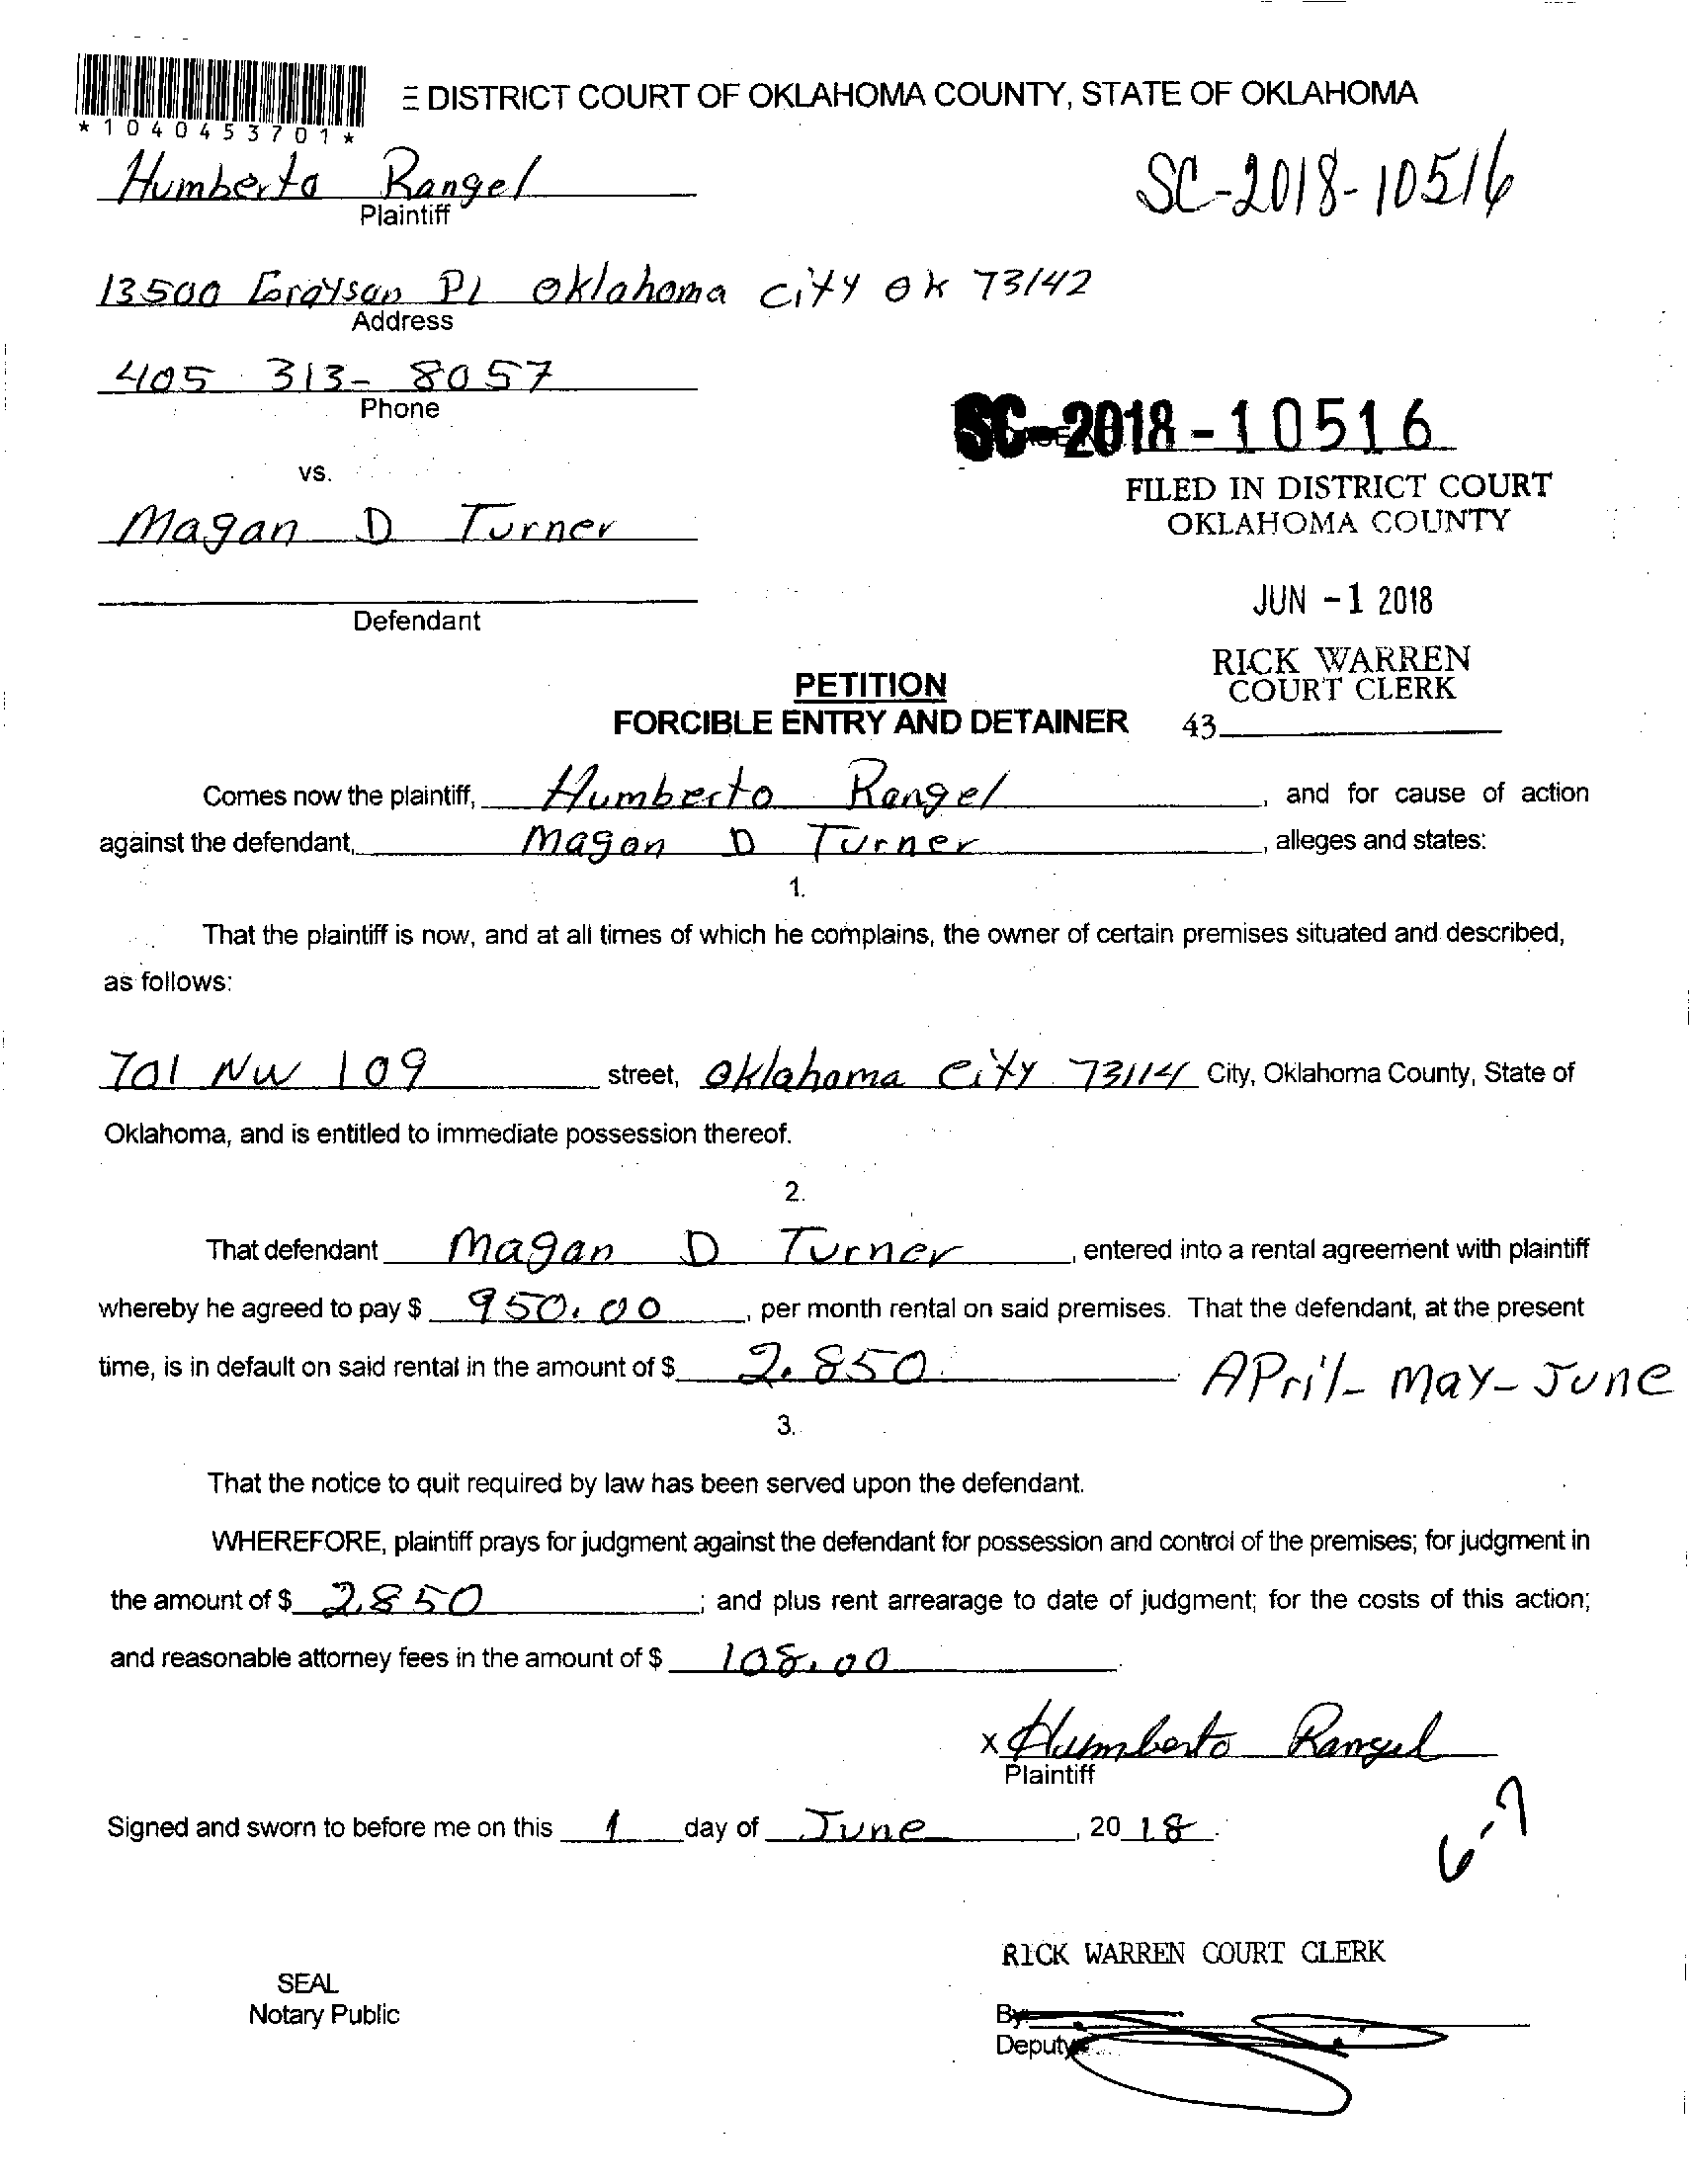 E DISTRICT COURT OF OKLAHOMA COUNTY, STATE OF OKLAHOMA
*1040453701*
Humberto Rangel
Plaintiff
SC-2018-10516
13500 Grayson Pl Oklahoma City Ok 73142
Address
405 313-8057
Phone
SC-2018-10516
vs.
FILED IN DISTRICT COURT
OKLAHOMA COUNTY
Magan D Turner
JUN -1 2018
Defendant
RICK WARREN
COURT CLERK
43
PETITION
FORCIBLE ENTRY AND DETAINER
Comes now the plaintiff, Humberto Rangel, and for cause of action
against the defendant, Magan D Turner, alleges and states:
1.
That the plaintiff is now, and at all times of which he complains, the owner of certain premises situated and described,
as follows:
701 NW 109 street, Oklahoma City 73114 City, Oklahoma County, State of
Oklahoma, and is entitled to immediate possession thereof.
2.
That defendant Magan D Turner, entered into a rental agreement with plaintiff
whereby he agreed to pay $ 950.00, per month rental on said premises. That the defendant, at the present
time, is in default on said rental in the amount of $ 2.850. April- May- June
3.
That the notice to quit required by law has been served upon the defendant.
WHEREFORE, plaintiff prays for judgment against the defendant for possession and control of the premises; for judgment in
the amount of $ 2,850; and plus rent arrearage to date of judgment; for the costs of this action;
and reasonable attorney fees in the amount of $ 108.00.
x Humberto Rangel
Plaintiff
Signed and sworn to before me on this 1 day of June, 20 18.
6-7
RICK WARREN COURT CLERK
SEAL
Notary Public
By:
Deputy